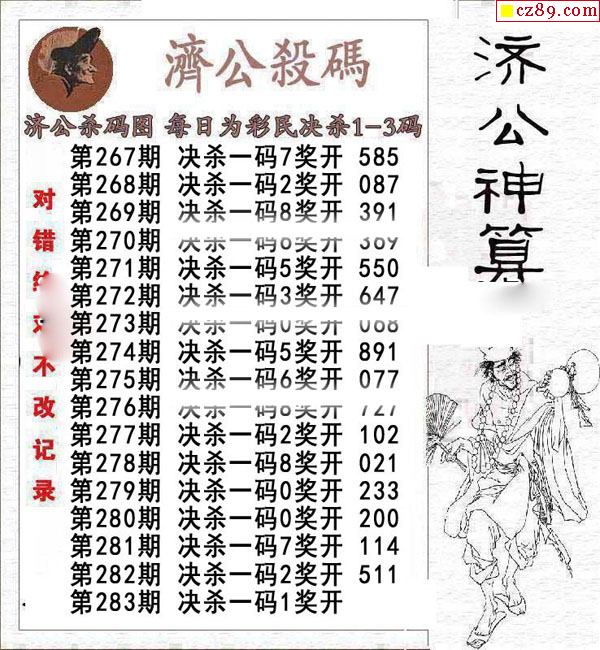 cz89.com
濟公殺碼
济公杀码图 每日为彩民决杀1-3码
第267期 决杀一码7奖开 585
第268期 决杀一码2奖开 087
第269期 决杀一码8奖开 391
第270期 决杀一码 奖开 369
第271期 决杀一码5奖开 550
第272期 决杀一码3奖开 647
第273期 决杀一码0奖开 068
第274期 决杀一码5奖开 891
第275期 决杀一码6奖开 077
第276期 决杀一码 奖开 727
第277期 决杀一码2奖开 102
第278期 决杀一码8奖开 021
第279期 决杀一码0奖开 233
第280期 决杀一码0奖开 200
第281期 决杀一码7奖开 114
第282期 决杀一码2奖开 511
第283期 决杀一码1奖开
对错 不改记录
济公神算